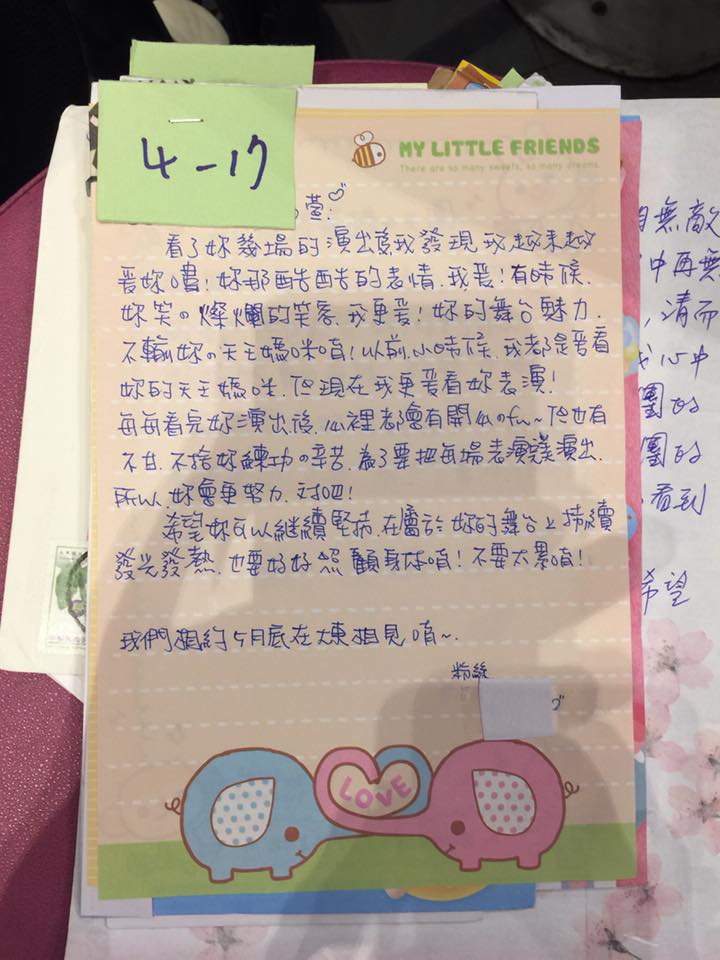 4-17
MY LITTLE FRIENDS
There are so many sweets, so many dreams.
萱:
看了妳幾場的演出後我發現我越來越
愛妳嘍!妳那酷酷的表情.我愛!有時候.
妳笑の燦爛的笑容.我更愛!妳的舞台魅力.
不輸妳の天王媽咪唷!以前.小時候.我都是愛看
妳的天王媽咪.但現在我更愛看妳表演!
每每看完妳演出後.心裡都會有開心のfu~但也有
不甘.不捨妳練功の辛苦.為了要把每場表演演出.
所以.妳會更努力.對吧!
希望妳可以繼續堅持.在屬於妳的舞台上持續
發光發熱.也要好好照顧身体唷!不要太累唷!
我們相約5月底在大東相見唷~.
粉絲
LOVE
無敵
中再無
,清而
心中
團的
團的
看到
希望